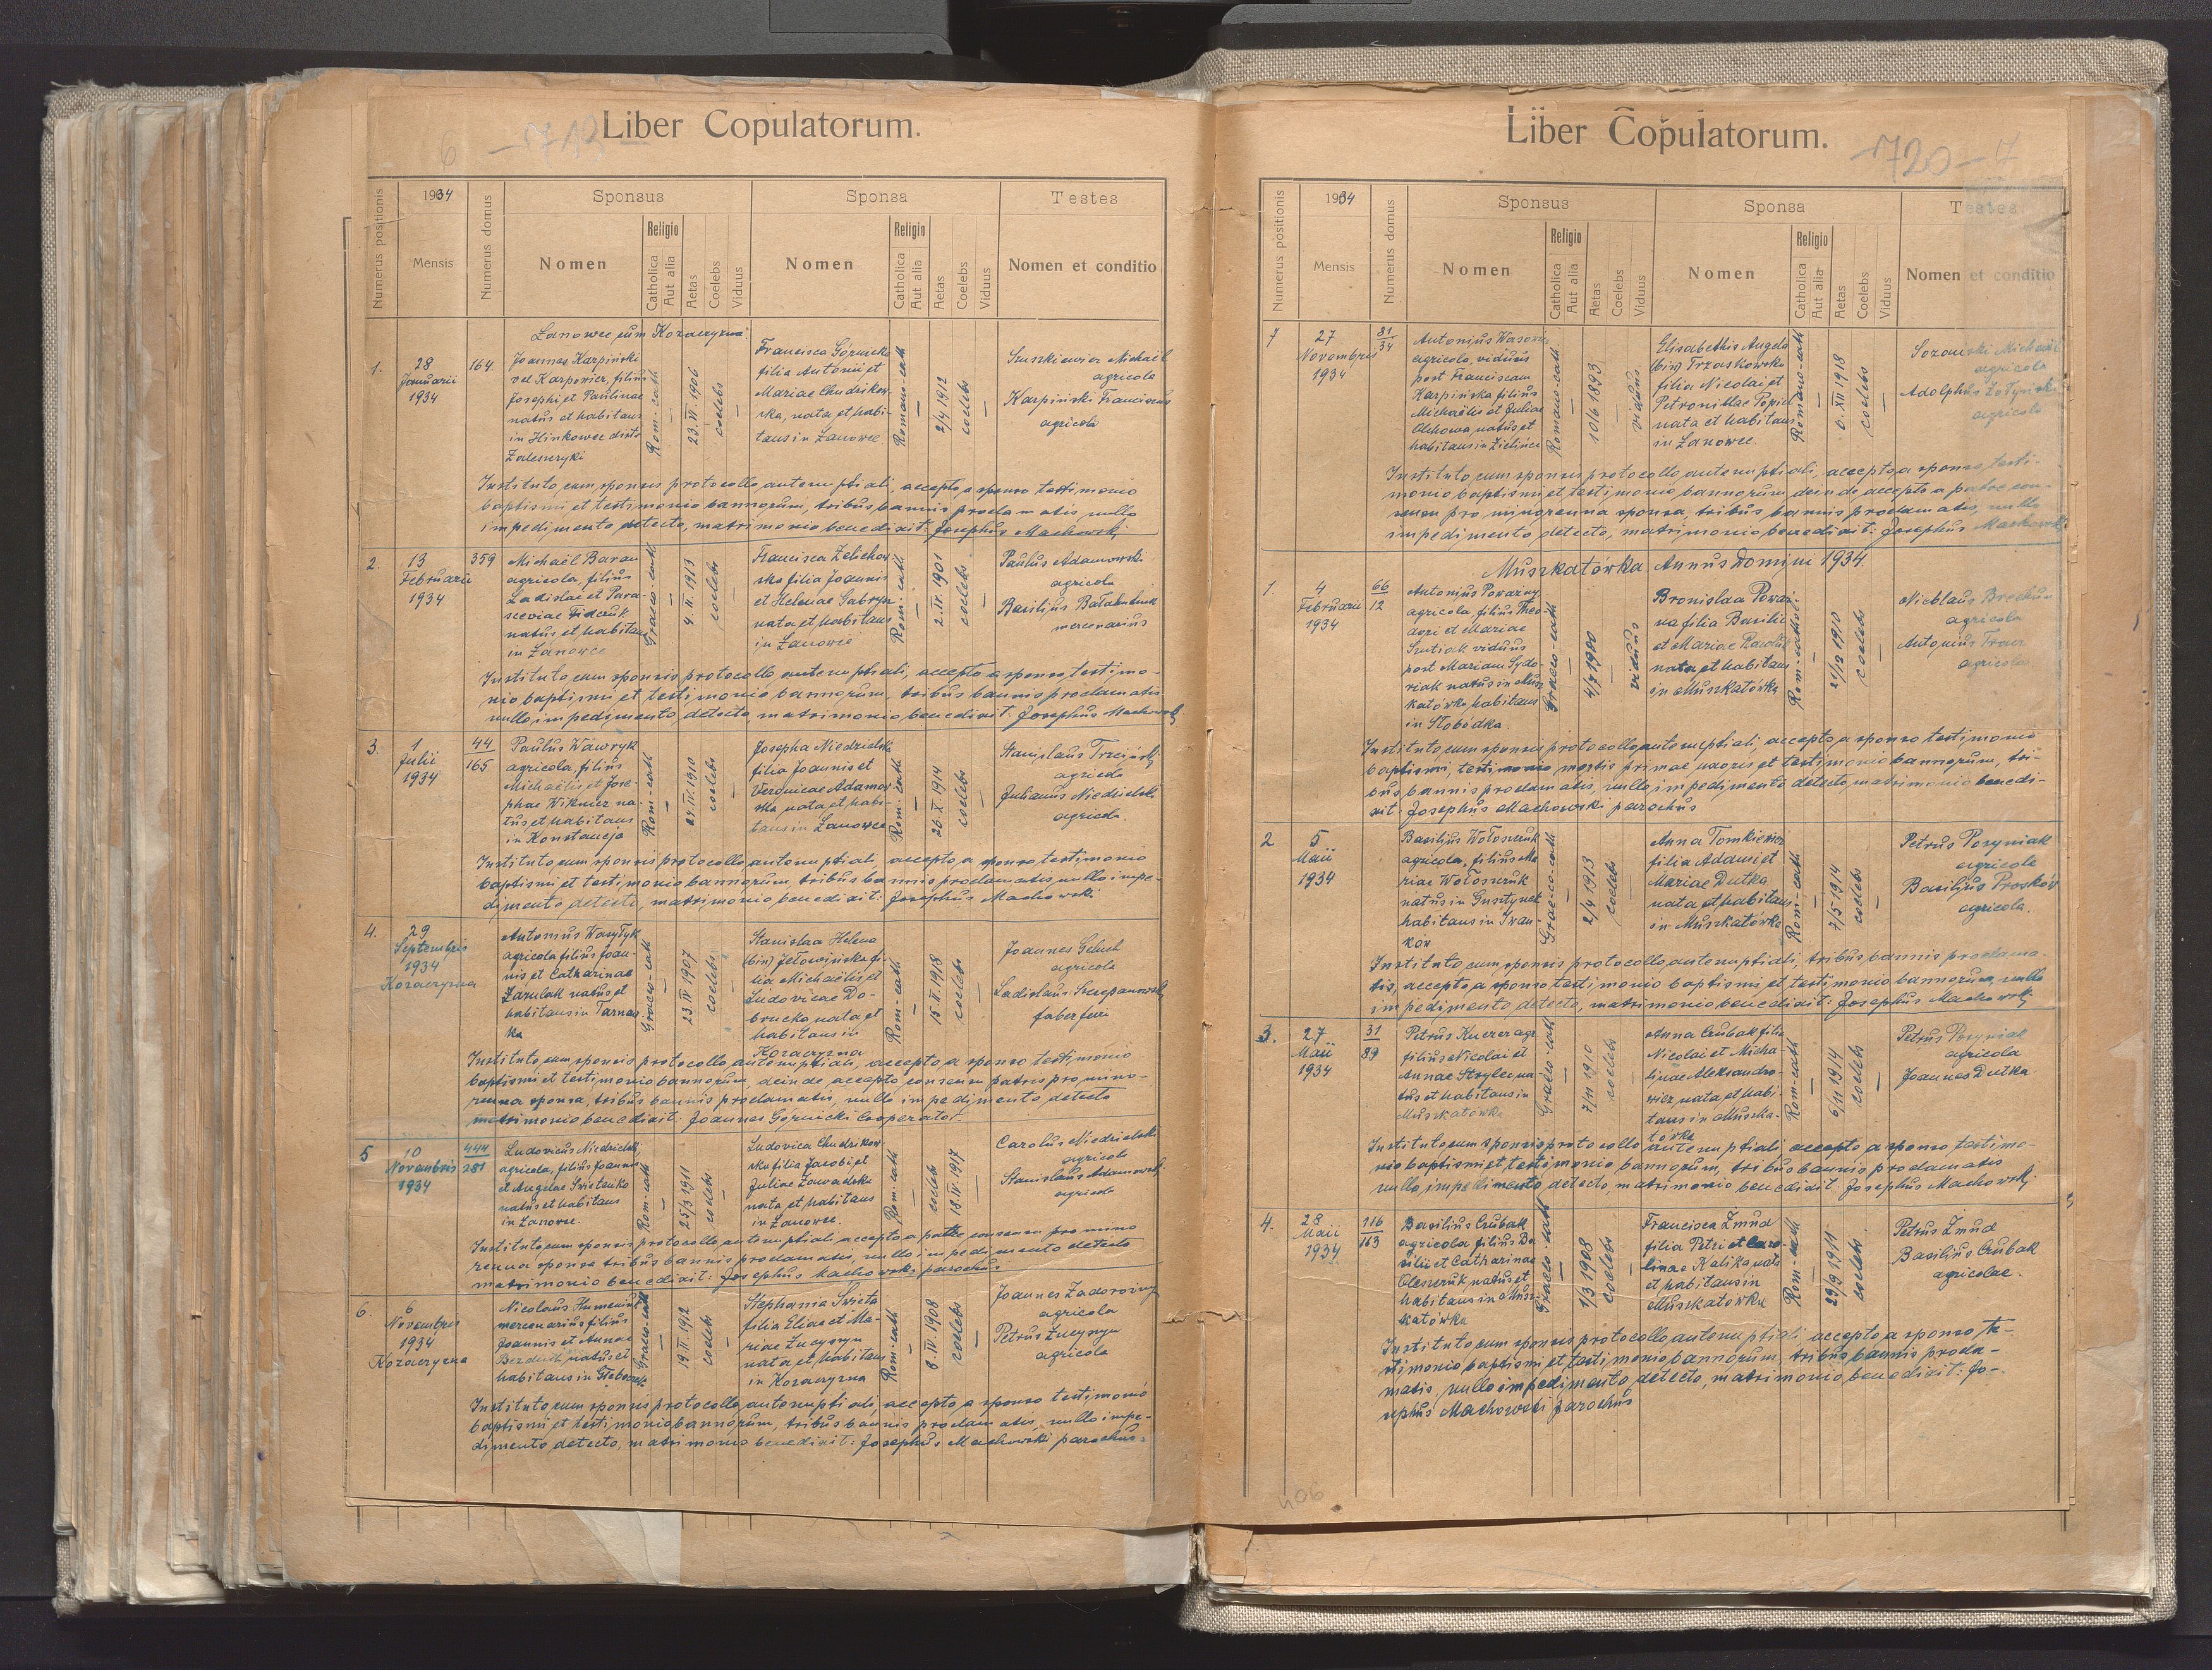 Liber Copulatorum.
1934
Numerus positionis
Mensis
Numerus domus
Sponsus
Nomen
Religio
Catholica
Aut alia
Aetas
Coelebs
Viduus
Sponsa
Nomen
Religio
Catholica
Aut alia
Aetas
Coelebs
Viduus
Testes
Nomen et conditio
Lanowce cum Kozaczyzna
1.
28
Januarii
1934
164.
Joannes Karpiński
vel Karpowicz, filius
Josephi et Paulinae
natus et habitans
in Hinkowce distr.
Zaleszczyki
Rom-cath
23. VI. 1906
coelebs
Francisca Górnicka
filia Antonii et
Mariae Chudzikow-
ska, nata et habi-
tans in Lanowce
Romano-cath
2/4 1912
coelebs
Szuszkiewicz Michaël
agricola
Karpiński Franciscus
agricola
Instituto cum sponsis protocollo antenuptiali, accepto a sponso testimonio
baptismi et testimonio bannorum, tribus bannis proclamatis nullo
impedimento detecto, matrimonio benedixit: Josephus Machowski
2.
13
Februarii
1934
359
Michaël Baran
agricola, filius
Ladislai et Para-
sceviae Fidczuk
natus et habitans
in Lanowce
Graeco-cath
4. II. 1913
coelebs
Francisca Zelichow-
ska filia Joannis
et Helenae Gabrysz
nata et habitans
in Lanowce
Rom-cath
2. IV. 1901
coelebs
Paulus Adamowski
agricola
Basilius Bałabuszuk
mercenarius
Instituto cum sponsis protocollo antenuptiali, accepto a sponso testimo-
nio baptismi et testimonio bannorum, tribus bannis proclamatis
nullo impedimento detecto matrimonio benedixit: Josephus Machowski
3.
1
Julii
1934
44
165
Paulus Wawryk
agricola, filius
Michaëlis et Jose-
phae Wikniez na-
tus et habitans
in Konstancja
Rom-cath
coelebs
Josepha Niedzielska
filia Joannis et
Veronicae Adamow-
ska nata et habi-
tans in Lanowce
Rom-cath
26 X. 1914
coelebs
Stanislaus Trzciński
agricola
Julianus Niedzielski
agricola.
Instituto cum sponsis protocollo antenuptiali, accepto a sponso testimonio
baptismi et testimonio bannorum, tribus bannis proclamatis nullo impe-
dimento detecto, matrimonio benedixit: Josephus Machowski
4.
29
Septembris
1934
Kozaczyzna
Antonius Wasylyk
agricola filius Joan-
nis et Catharinae
Zarulak natus et
habitans in Tarnaw-
ka
Graeco-cath
23. IV 1907
coelebs
Stanislaa Helena
(bin) Jełowińska fi-
lia Michaëlis et
Ludovicae Do-
brucka nata et
habitans in
Kozaczyzna
Rom-cath
15. V. 1918
coelebs
Joannes Geluch
agricola
Ladislaus Szczepanowski
faber ferri
Instituto cum sponsis protocollo antenuptiali, accepto a sponso testimonio
baptismi et testimonio bannorum, deinde accepto consensu patris pro mino-
renna sponsa, tribus bannis proclamatis, nullo impedimento detecto
matrimonio benedixit: Joannes Górnicki Cooperator
5
10
Novembris
1934
444
281
Ludovicus Niedzielski
agricola, filius Joannis
et Angelae Swietenko
natus et habitans
in Lanowce.
Rom-cath
25/3 1911
coelebs
Ludovica Chudzikow-
ska filia Jacobi et
Juliae Zawadzka
nata et habitans
in Lanowce.
Rom-cath
coelebs
18. IV. 1917
Carolus Niedzielski
agricola
Stanislaus Adamowski
agricola
Instituto cum sponsis protocollo antenuptiali accepto a patre consensu pro mino
renna sponsa tribus bannis proclamatis, nullo impedimento detecto
matrimonio benedixit: Josephus Machowski parochus
6.
6
Novembris
1934
Kozaczyzna
Nicolaus Humeniuk
mercenarius filius
Joannis et Annae
natus et
habitans in
Graeco-cath
19. II. 1912
coelebs
Stephania Swieta
filia Eliae et Ma-
riae Zuczyszyn
nata et habitans
in Kozaczyzna
Rom-cath
8. IV. 1908
coelebs
Joannes Zadorożny
agricola
Petrus Zuczyszyn
agricola
Instituto cum sponsis protocollo antenuptiali, accepto a sponso testimonio
baptismi et testimonio bannorum, tribus bannis proclamatis, nullo impe-
dimento detecto, matrimonio benedixit: Josephus Machowski parochus.
Liber Copulatorum.
-720- 7
1934
Numerus positionis
Mensis
Numerus domus
Sponsus
Nomen
Religio
Catholica
Aut alia
Aetas
Coelebs
Viduus
Sponsa
Nomen
Religio
Catholica
Aut alia
Aetas
Coelebs
Viduus
Testes
Nomen et conditio
7
27
Novembris
1934
81
34
Antonius
agricola, viduus
post Franciscam
Karpińska filius
Michaëlis et Juliae
Olchowa natus et
habitans in Zielińce
Romano-cath
10/6 1893
viduus
Elisabethis Angela
(bin) Trzaskowska
filia Nicolai et
Petronillae Popiel
nata et habitans
in Lanowce.
Romano-cath
6. XII 1918
coelebs
Sozański Michaël
agricola
Adolphus Zołyński
agricola
Instituto cum sponsis protocollo antenuptiali, accepto a sponso testi-
monio baptismi et testimonio bannorum deinde accepto a patre con-
sensu pro minorenna sponsa, tribus bannis proclamatis, nullo
impedimento detecto, matrimonio benedixit: Josephus Machowski
Muszkatówka Annus Domini 1934.
1.
4
Februarii
1934
66
12
Antonius Poważny
agricola, filius Theo-
dori et Mariae
Szutiak viduus
post Mariam Sydo-
riak natus in Musz-
katówka habitans
in Słobodka
Graeco-cath
4/7 1900
viduus
Bronislaa Poważ-
na filia Basilii
et Mariae Rawluk
nata et habitans
in Muszkatówka
Rom-cathol-
21/12 1910
coelebs
Nicolaus
agricola
Antonius
agricola
Instituto cum sponsis protocollo antenuptiali, accepto a sponso testimonio
baptismi, testimonio mortis primae uxoris et testimonio bannorum, tri-
bus bannis proclamatis, nullo impedimento detecto, matrimonio benedi-
xit: Josephus Machowski parochus
2
5
Maii
1934
Basilius Wołoszczuk
agricola, filius Ma
riae Wołoszczuk
natus in Gusztynek
habitans in Iwan-
ków
Grae-co-cath
2/4 1913
coelebs
Anna Tomkiewicz
filia Adami et
Mariae Dutka
nata et habitans
in Muszkatówka
Rom-cath
7/5 1914
coelebs
Petrus Posyniak
agricola
Basilius Prosków
agricola.
Instituto cum sponsis protocollo antenuptiali, tribus bannis proclama-
tis, accepto a sponso testimonio baptismi et testimonio bannorum, nullo
impedimento detecto, matrimonio benedixit: Josephus Machowski
3.
27
Maii
1934
31
89
Petrus Kuczer agr.
filius Nicolai et
Annae Strylec na-
tus et habitans in
Muszkatówka
Graeco-cath
7/11 1910
coelebs
Anna Czubak filia
Nicolai et Micha-
linae Aleksandro-
wicz, nata et habi-
tans in Muszka-
tówka
Rom-cath
6/11 1914
coelebs
Petrus Posyniak
agricola
Joannes Dutka
Instituto cum sponsis protocollo antenuptiali, accepto a sponso testimo-
nio baptismi et testimonio bannorum, tribus bannis proclamatis
nullo impedimento detecto, matrimonio benedixit: Josephus Machowski
4.
28
Maii
1934
116
163
Basilius Czubak
agricola filius Ba
silii et Catharinae
Oleszczuk natus et
habitans in Musz-
katówka
Graeco-cath
1/3 1908
coelebs
Francisca Żmud
filia Petri et Caro-
linae Kalika nata
et habitans in
Muszkatówka
Rom-cath
29/9 1911
coelebs
Petrus Żmud
Basilius Czubak
agricolae.
Instituto cum sponsis protocollo antenuptiali accepto a sponso te-
stimonio baptismi et testimonio bannorum, tribus bannis procla-
matis, nullo impedimento detecto, matrimonio benedixit: Jo-
sephus Machowski parochus
406